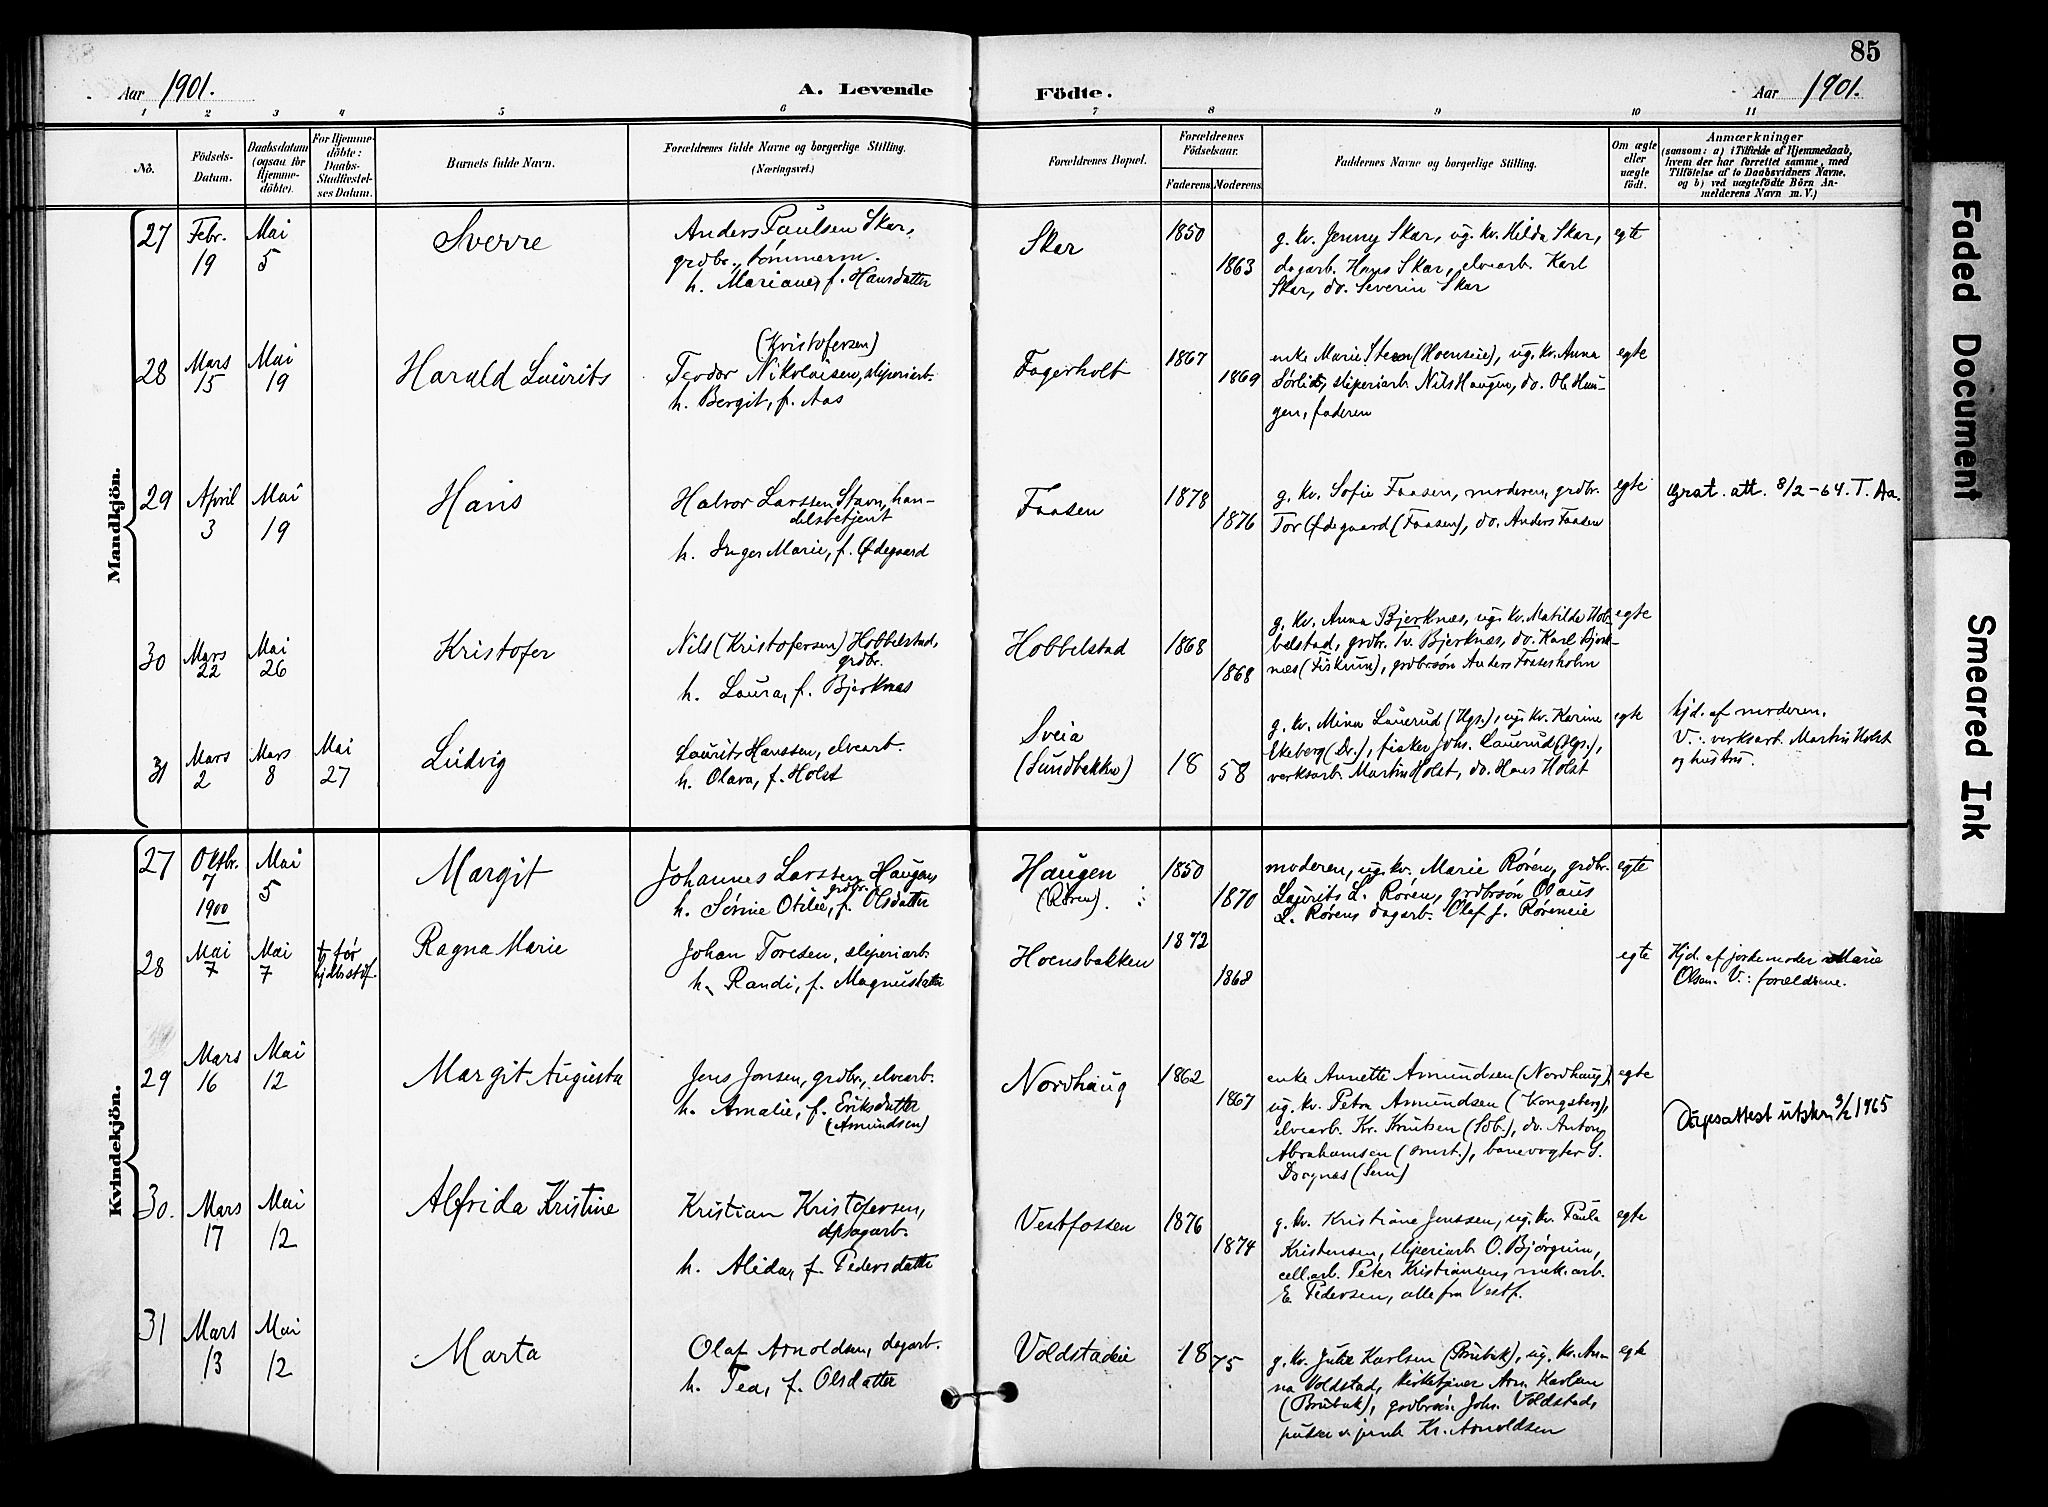 85
Aar 1901.
A. Levende
Födte.
Aar 1901.
1 2 3 4 5 6 7 8 9 10 11
No.
Födsels-
Datum.
Daabsdatum
(ogsaa for
Hjemme-
döbte).
For Hjemme-
döbte:
Daabs-
Stadfæstel-
ses Datum.
Barnets fulde Navn.
Forældrenes fulde Navne og borgerlige Stilling.
(Næringsvei.)
Forældrenes Bopæl.
Forældrenes
Födselsaar.
Faderens.
Moderens.
Faddernes Navne og borgerlige Stilling.
Om ægte
eller
uægte
födt.
Anmærkninger
(saasom: a) i Tilfælde af Hjemmedaab,
hvem der har forrettet samme, med
Tilföielse af to Daabsvidners Navne,
og b) ved uægtefödte Börn An-
melderens Navn m. V.)
Mandkjön.
27
Febr.
19
Mai
5
Sverre
Anders Paulsen Skar,
grdbr., tømmerm.
h. Mariane, f. Hansdatter
Skar
1850
1863
g. kv. Jenny Skar, ug. kv. Hilda Skar,
dagarb. Hans Skar, elvearb. Karl
Skar, do. Severin Skar
egte
28
Mars
15
Mai
19
Harald Laurits
(Kristofersen)
Teodor Nikolaisen, sliperiarb.
h. Bergit, f. Aas
Fagerholt
1867
1869
enke Marie Steen (Hoenseie), ug. kv. Anna
Sørlid, sliperiarb. Nils Haugen, do. Ole Hau-
gen, faderen
egte
29
April
3
Mai
19
Hans
Halvor Larssen Stavn, han-
delsbetjent
h. Inger Marie, f. Ødegaard
Faasen
1878
1876
g. kv. Sofie Faasen, moderen, grdbr.
Tor Ødegaard (Faasen), do. Anders Faasen
egte
Grat. att. 8/2-64. T. Aa.
30
Mars
22
Mai
26
Kristofer
Nils (Kristofersen) Hobbelstad,
grdbr.
h. Laura, f. Bjerknæs
Hobbelstad
1868
1868
g. kv. Anna Bjerknæs, ug. kv. Matilde Hob-
belstad, grdbr. Iv. Bjerknæs, do. Karl Bjerk-
næs (Fiskum), grdbrsøn Anders Fossesholm
egte
31
Mars
2
Mars
8
Mai
27
Ludvig
Laurits Hanssen, elvearb.
h. Olava, f. Holst
Sveia
(Sundbakken)
18 58
g. kv. Mina Lauerud (Hgs.), ug. kv. Karine
Ekeberg (Dr.), fisker Joh. Lauerud (Hgs.),
verksarb. Martin Holst, do. Hans Holst
egte
hjd. af moderen.
V.: verksarb. Martin Holst
og hustru.
Kvindekjön.
27
Oktbr.
7
1900
Mai
5
Margit
Johannes Larssen Haugen,
grdbr.
h. Sørine Otilie, f. Olsdatter
Haugen
(Røren).
1850
1870
moderen, ug. kv. Marie Røren, grdbr.
Laurits L. Røren, grdbrsøn Olaus
L. Røren, dagarb. Olaf J. Røreneie
egte
28
Mai
7
Mai
7
† før
hjdb. stdf.
Ragna Marie
Johan Toresen, sliperiarb.
h. Randi, f. Magnusdatter
Hoensbakken
1872
1868
egte
Hjd. af jordemoder Marie
Olsen. V.: forældrene.
29
Mars
16
Mai
12
Margit Augusta
Jens Jonsen, grdbr., elvearb.
h. Amalie, f. Eriksdatter
(Amundsen)
Nordhaug
1862
1867
enke Annette Amundsen (Nordhaug),
ug. kv. Petra Amundsen (Kongsberg),
elvearb. Kr. Knutsen (Sdb.), do. Anton
Abrahamsen (smst.), banevogter S.
Dognæs (Sem)
egte
Dåpsattest utskr. 3/2 1965
30.
Mars
17
Mai
12
Alfrida Kristine
Kristian Kristofersen,
dpsagarb.
h. Alida, f. Pedersdatter
Vestfossen
1876
1874
g. kv. Kristiane Jenssen, ug. kv. Paula
Kristensen, sliperiarb. O. Bjørgum,
cell.arb. Peter Kristiansen, mek. arb.
E. Pedersen, alle fra Vestf.
egte
31
Mars
13
Mai
12
Marta
Olaf Arnoldsen, dagarb.
h. Tea, f. Olsdatter
Voldstadeie
18 75
g. kv. Julie Karlsen (Brubak), ug. kv. An-
na Voldstad, kirketjener Arn. Karlsen
(Brubak), grdbrsøn Joh. Voldstad,
pudser v. jernb. Kr. Arnoldsen
egte
Faded Document
Smeared Ink